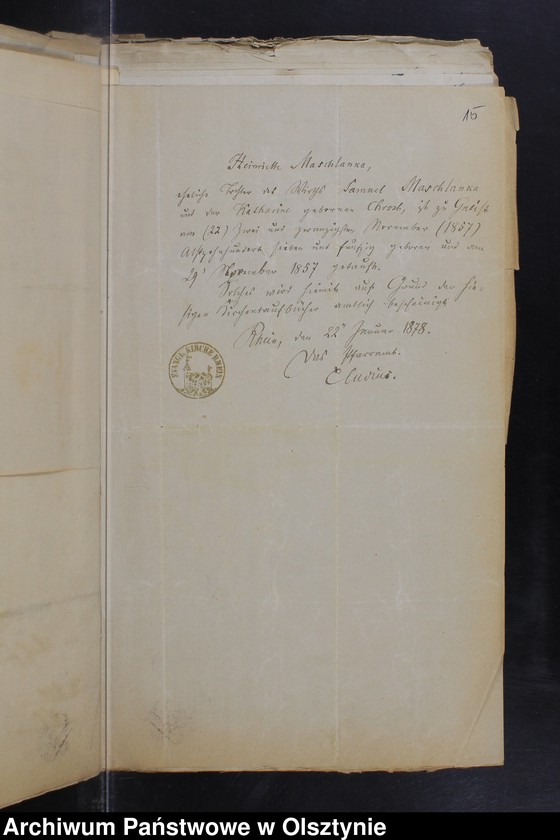 15
Heinriette Maschlanka,
eheliche Tochter des Wirths Samuel Maschlanka
und der Katharine geborenen Chrost, ist zu
am (22) Zwei und zwanzigsten November (1857)
Achtzehnhundert sieben und fünfzig geboren und am
29t November 1857 getauft.
Solches wird hiemit auf Grund der hie-
sigen Kirchentaufbücher amtlich bescheinigt
Rhein, den 22t Januar 1878.
Das Pfarramt.
Cludius.
EVANGL. KIRCHE RHEIN
Archiwum Państwowe w Olsztynie